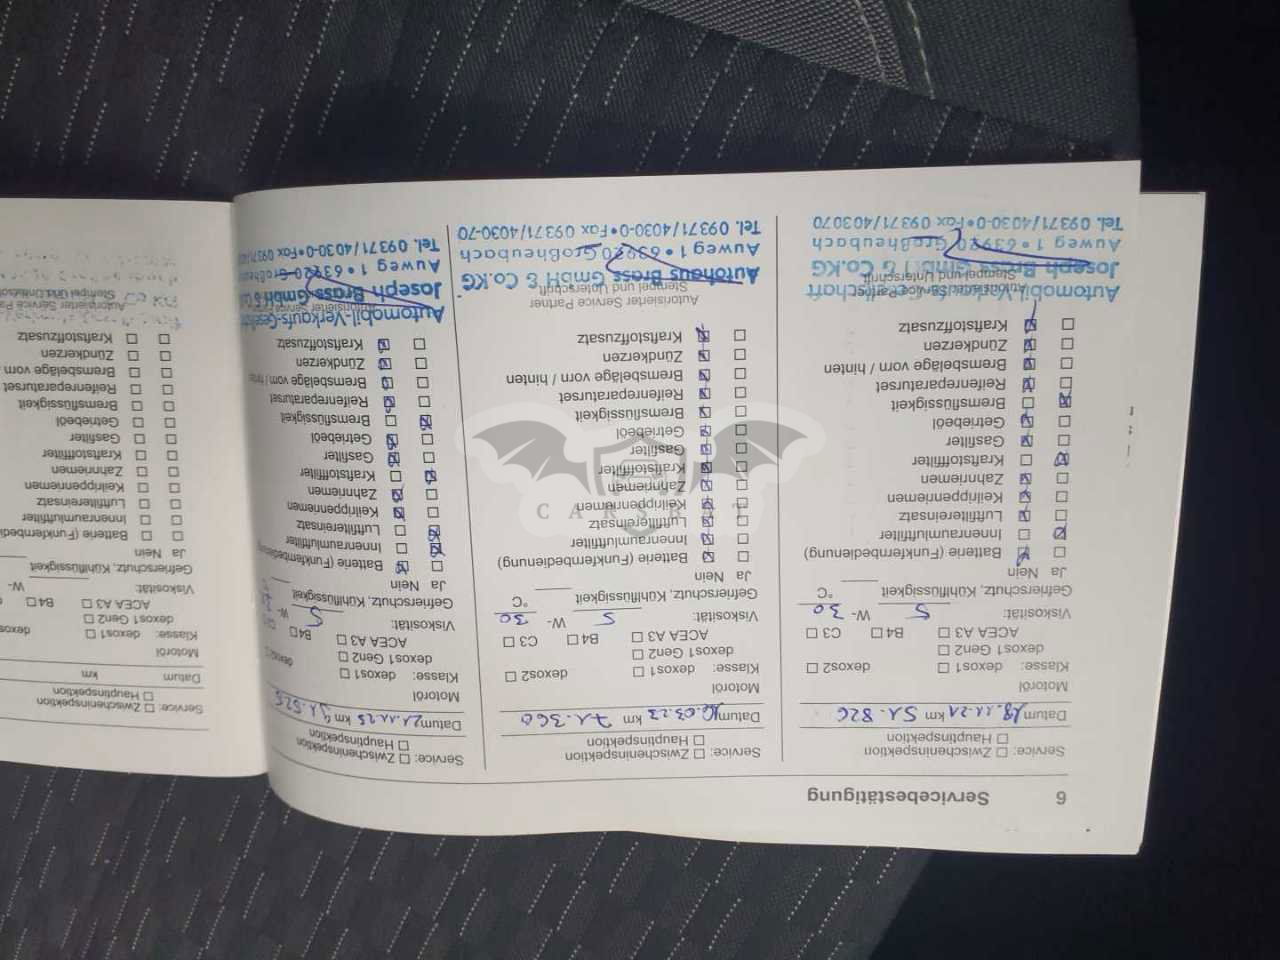 6 Servicebestätigung
Service: Zwischeninspektion
Hauptinspektion
Datum km 51.826
Motoröl
Klasse: dexos1 dexos2
dexos1 Gen2
ACEA A3 B4 C3
Viskosität: 5 W- 30
Gefrierschutz, Kühlflüssigkeit °C
Ja Nein
Batterie (Funkfernbedienung)
Innenraumluftfilter
Luftfiltereinsatz
Keilrippenriemen
Zahnriemen
Kraftstofffilter
Gasfilter
Getriebeöl
Bremsflüssigkeit
Reifenreparaturset
Bremsbeläge vorn / hinten
Zündkerzen
Kraftstoffzusatz
Autorisierter Service Partner
Stempel und Unterschrift
Joseph Brass GmbH & Co.KG
Auweg 1 • 63920 Großheubach
Tel. 09371/4030-0•Fax 09371/403070
Service: Zwischeninspektion
Hauptinspektion
Datum km 71.360
Motoröl
Klasse: dexos1 dexos2
dexos1 Gen2
ACEA A3 B4 C3
Viskosität: 5 W- 30
Gefrierschutz, Kühlflüssigkeit °C
Ja Nein
Batterie (Funkfernbedienung)
Innenraumluftfilter
Luftfiltereinsatz
Keilrippenriemen
Zahnriemen
Kraftstofffilter
Gasfilter
Getriebeöl
Bremsflüssigkeit
Reifenreparaturset
Bremsbeläge vorn / hinten
Zündkerzen
Kraftstoffzusatz
Autorisierter Service Partner
Stempel und Unterschrift
Autohaus Brass GmbH & Co.KG
Auweg 1 • 63920 Großheubach
Tel. 09371/4030-0•Fax 09371/4030-70
Service: Zwischeninspektion
Hauptinspektion
Datum 21.11.25 km
Motoröl
Klasse: dexos1
dexos1 Gen2
ACEA A3 B4
Viskosität: 5 W-
Gefrierschutz, Kühlflüssigkeit
Ja Nein
Batterie (Funkfernbedienung)
Innenraumluftfilter
Luftfiltereinsatz
Keilrippenriemen
Zahnriemen
Kraftstofffilter
Gasfilter
Getriebeöl
Bremsflüssigkeit
Reifenreparaturset
Bremsbeläge vorn / hinten
Zündkerzen
Kraftstoffzusatz
Automobil-Verkaufs-Gesellschaft
Joseph Brass GmbH & Co.
Auweg 1 • 63920 Großheu
Tel. 09371/4030-0•Fax 09371/40
Service: Zwischeninspektion
Hauptinspektion
Datum km
Motoröl
Klasse: dexos1 dexos
dexos1 Gen2
ACEA A3 B4
Viskosität: W-
Gefrierschutz, Kühlflüssigkeit
Ja Nein
Batterie (Funkfernbedi
Innenraumluftfilter
Luftfiltereinsatz
Keilrippenriemen
Zahnriemen
Kraftstofffilter
Gasfilter
Getriebeöl
Bremsflüssigkeit
Reifenreparaturset
Bremsbeläge vorn
Zündkerzen
Kraftstoffzusatz
Autorisierter Service Pa
Stempel und Unterschri
CARSBAT